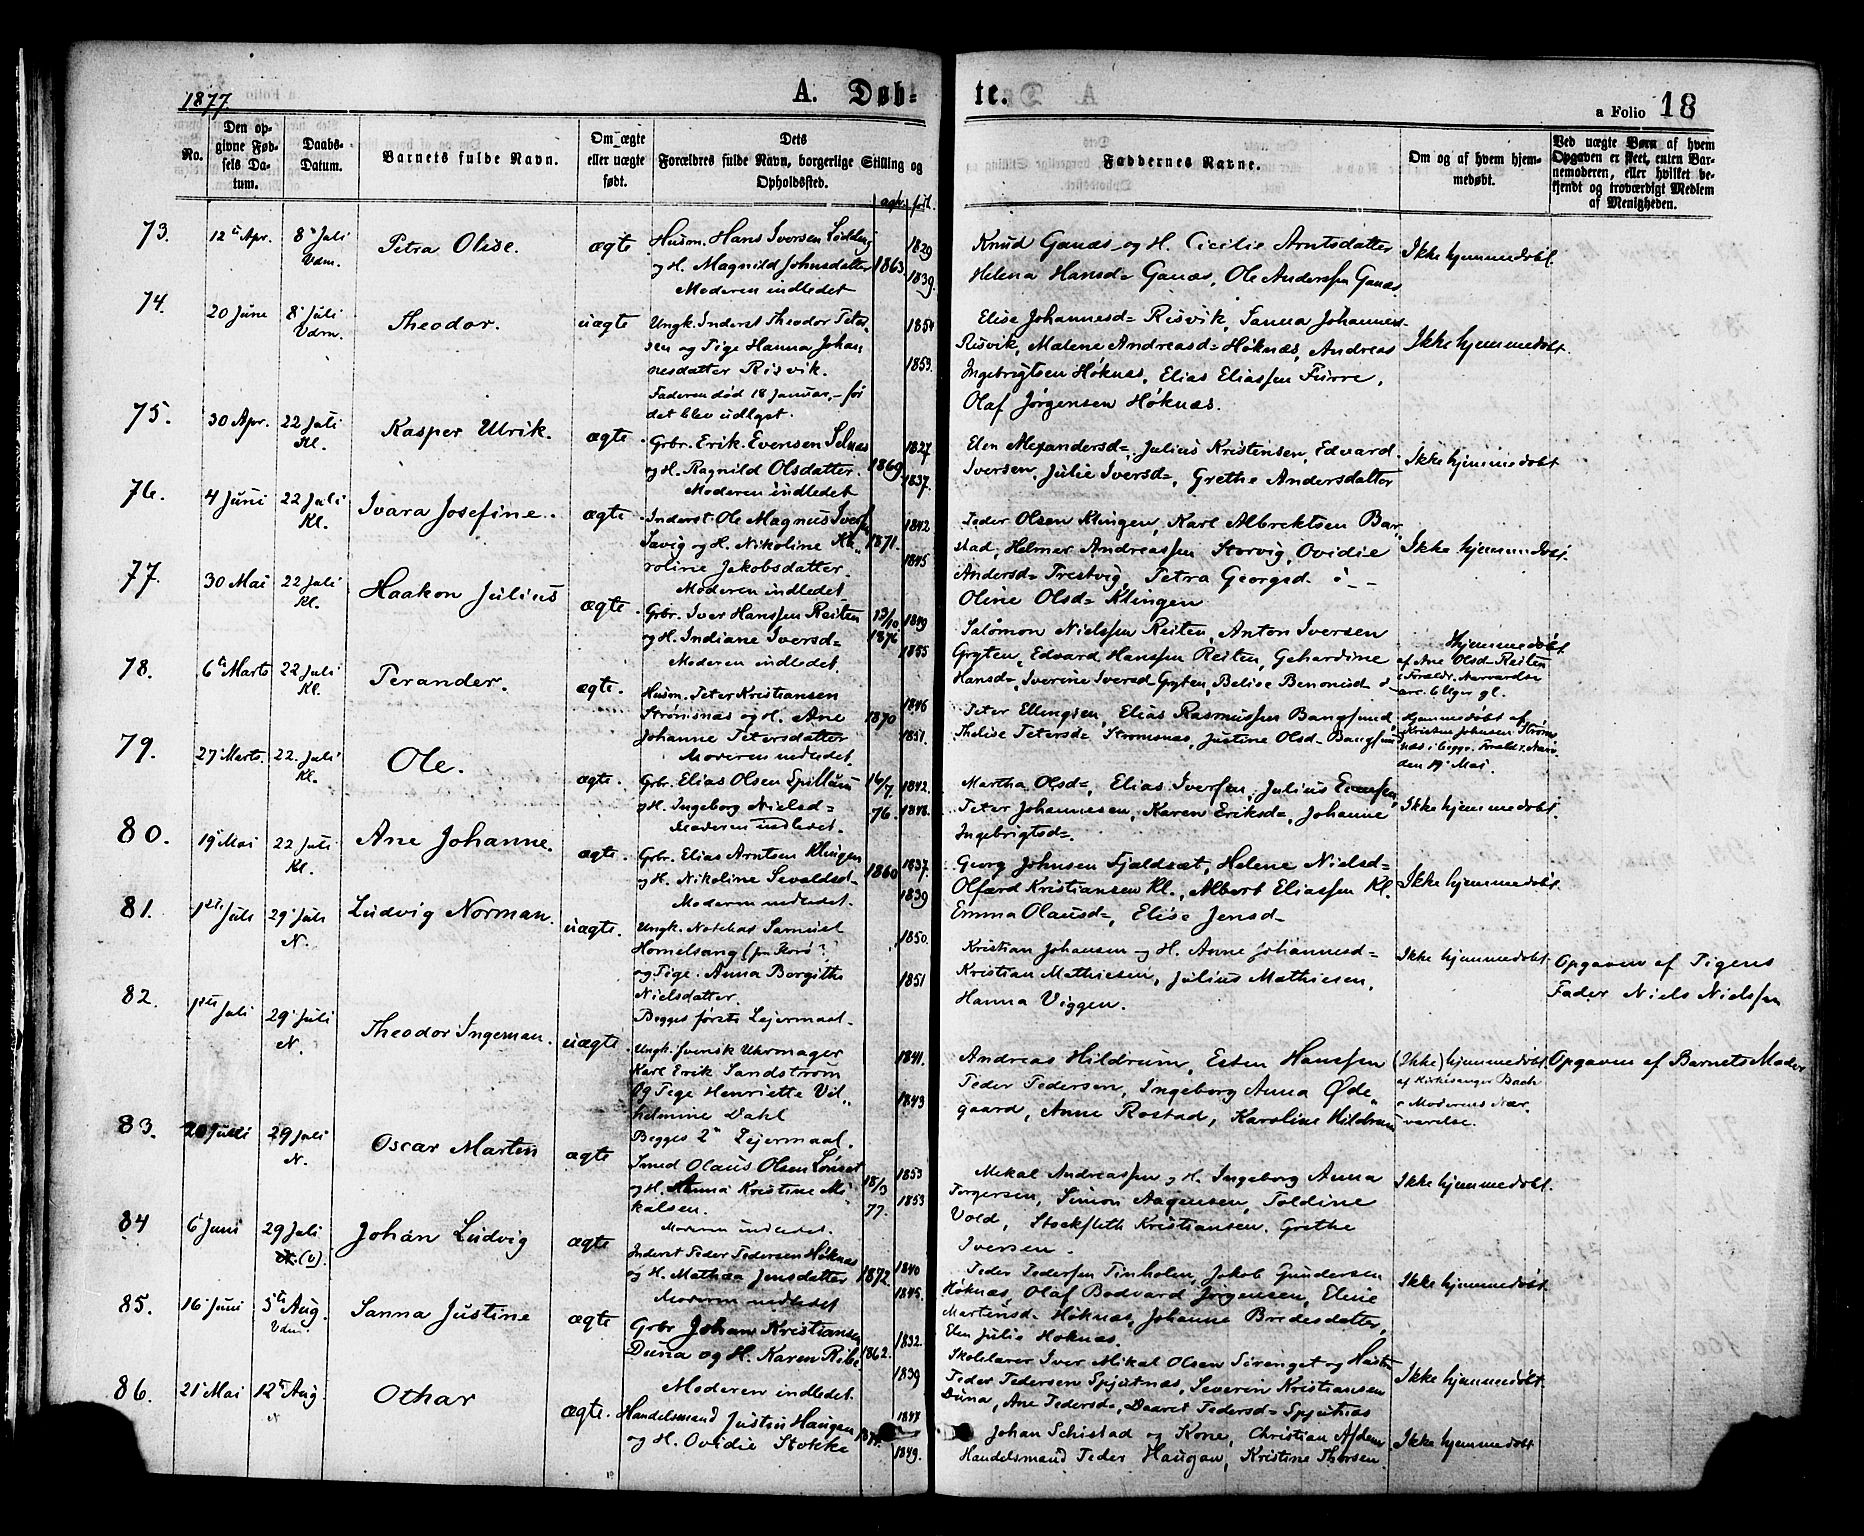 1877.
A. Døb-
te.
a Folio 18
No.
Den op-
givne Fød-
sels Da-
tum.
Daabs-
Datum.
Barnets fulde Navn.
Om ægte
eller uægte
født.
Dets
Forældres fulde Navn, borgerlige Stilling og
Opholdssted.
Faddernes Navne.
Om og af hvem hjem-
medøbt.
Ved uægte Børn af hvem
Opgaven er skeet, enten Bar-
nemoderen, eller hvilket be-
kjendt og troværdigt Medlem
af Menigheden.
73.
12te Apr.
8de Juli
Vdm.
Petra Olise.
ægte
Husm. Hans Iversen Lødding
og H. Magnild Johnsdatter
Moderen indledet
1863
1829
1839.
Knud Ganæs og H. Cicilie Arntsdatter
Helena Hansd= Ganæs, Ole Anderssen Ganæs
Ikke hjemmedøbt.
74.
20 June
8de Juli
Vdm.
Theodor.
uægte
Ungk. Inderst Theodor Peter-
sen og Pige Hanna Johan-
nesdatter Risvik.
Faderen død 18 Januar, før
det blev udlyst.
1854
1853.
Elise Johannesd= Risvik, Sanna Johannesd=
Risvik, Malene Andreasd= Høknæs, Andreas
Ingebrigtsen Høknæs, Elias Eliassen Furre,
Olaf Jørgensen Høknæs.
Ikke hjemmedøbt.
75.
30 Apr.
22 Juli
Kl.
Kasper Ulrik.
ægte.
Grbr. Erik Evensen Selnæs
og H. Ragnild Olsdatter.
Moderen indledet
1869
1827
1837.
Elen Alexandersd=, Julius Kristensen, Edvard
Iversen, Julie Iversd=, Grethe Andersdatter
Ikke hjemmedøbt
76.
4 Juni
22 Juli
Kl.
Ivara Josefine.
ægte.
Inderst Ole Magnus Iversen
Sævig og H. Nikoline Ka-
roline Jakobsdatter.
Moderen indledet
1871.
1842
1845
Peder Olsen Klingen, Karl Albrektsen Bar-
stad, Helmer Andreassen Storvig, Ovidie
Andersd= Trestvig, Petra Georgsd.
Oline Olsd= Klingen
Ikke hjemmedøbt.
77.
30 Mai
22 Juli
Kl.
Haakon Julius
ægte.
Grbr. Iver Hanssen Reiten
og H. Indiane Iversd=
Moderen indledet.
13/10
1876
1849
1855
Salomon Nielssen Reiten, Anton Iversen
Gryten, Edvard Hanssen Reiten, Gehardine
Hansd=, Iverine Iversd= Gryten, Belise Benonisd=
Hjemmedøbt
af Ane Olsd= Reiten
i Foræld. Nærværelse
6 Uger gl.
78.
6te Marts
22 Juli
Kl.
Perander.
ægte.
Husm. Peter Kristiansen
Strømsnæs og H. Ane
Johanne Petersdatter
Moderen indledet.
1870
1846
1851.
Peter Ellingsen, Elias Rasmussen Bangsund,
Thelise Petersd= Stromsnæs, Justine Olsd= Bangsund
Hjemmedøbt af
Kristen Johnsen Strøms
næs i begge Foræld. Nærv.
den 19 Mai.
79.
27 Marts.
22 Juli
Kl.
Ole.
ægte.
Grbr. Elias Olsen Spillum
og H. Ingeborg Nielsd=
Moderen indledet.
16/7
76.
1842.
1848.
Martha Olsd=, Elias Iversen, Julius Evensen,
Peter Johannesen, Karen Eriksd=, Johanne
Ingebrigtsd=
Ikke hjemmedøbt.
80.
19 Mai
22 Juli
Kl.
Ane Johanne.
ægte.
Grbr. Elias Arntsen Klingen
og H. Nikoline Sevaldsd=
Moderen indledet.
1860
1837.
1839
Georg Johnsen Fjældsæt, Helene Nielsd=
Olfærd Kristiansen Kl., Albert Eliassen Kl.
Emma Olausd=, Elise Jensd=
Ikke hjemmedøbt.
81.
1ste Juli
29 Juli
N.
Ludvig Norman.
uægte.
Ungk. Notebas Samuel
Hornelsang
og Pige. Anna Borgithe
Nielsdatter.
Begges første Lejermaal.
1850.
1851
Kristian Johansen og H. Anne Johannesd=
Kristian Mathiesen, Julius Mathiesen,
Hanna Viggen.
Ikke hjemmedøbt.
Opgaven af Pigens
Fader Niels Nielssen
82.
1ste Juli
29 Juli
N.
Theodor Ingeman.
uægte.
Ungk. svensk Uhrmager
Karl Erik Sandstrøm
Og Pige Henriette Vil-
helmine Dahl
Begges 2det Lejermaal.
1841.
1843
Andreas Hildrum, Esten Hanssen
Peder Pedersen, Ingeborg Anna Øde-
gaard, Anne Rostad, Karoline Hildrum
(Ikke) hjemmedøbt
af Kirkesanger Bach
i Moderens Nær-
værelse.
Opgaven af Barnets Moder
83.
20 Juli
29 Juli
N.
Oscar Martin
ægte
Smed Olaus Olsen Lønset
og H. Anna Kristine Mi-
kalsen.
Moderen indledet.
18/3
77.
1853
1853
Mekal Andreassen og H. Ingeborg Anna
Torgersen, Simon Aagensen, Toldine
Vold, Stockfleth Kristiansen, Grethe
Iversen.
Ikke hjemmedøbt.
84
6 Juni
29 Juli
(V).
Johan Ludvig
ægte
Inderst Peder Pedersen Høknæs
og H. Mathea Jensdatter
Moderen indledet
1872.
1840
1845.
Peder Pedersen Tinholen, Jakob Gundersen
Høknæs, Olaf Bodvard Jørgensen, Eline
Martinsd= Høknæs, Johanne Bredesdatter,
Elen Julie Høknæs.
Ikke hjemmedøbt.
85.
16 Juni
5te Aug.
Vdm.
Sanna Justine
ægte
Grbr Johan Kristiansen
Duna og H. Karen Ribe
Moderen indledet.
1862.
1832.
1839
Skolelærer Iver Mikal Olsen Sørenget og Hustru
Peder Pedersen Spjutnæs, Severin Kristiansen
Duna, Ane Pedersd=, Daaret Pedersd= Spjutnæs
Ikke hjemmedøbt.
86.
21 Mai
12te Aug.
N
Othar
ægte.
Handelsmand Justin Haugen
og H. Ovidie Stokke
1847
1849.
Johan Schistad og Kone, Christian
Handelsmand Peder Haugan, Kristine Thorsen.
Ikke hjemmedøbt